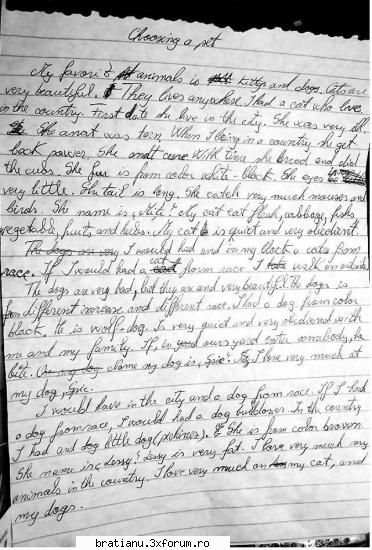 Choosing a pet
My favorit animals is kittys and dogs. Cats are
very beautiful. They lives anywhere. I had a cat who live
in the country. First date she live in the city. She was very ill.
She was torn. When I being in a country she get
back power. She With time she breed and died
the cubs. She furr is from color white - black. She eyes is
very little. She tail is long. She catch very much mouses and
birds. She name is My cat eat flesh, cabbage, fish,
vegetable, fruits and herbs. My cat is quiet and very obedient.
The dogs are very I would had and in my block a cats from
race. If I would had a cat from race I walk on outside.
The dogs are very bad, but they are and very beautiful. The dogs is
from different increase and different race. I had a dog from color
black. He is wolf-dog. Is very quiet and very obedient with
me and my family. If in ours yard enter anabody, he
bite. Name my dog is I love very much at
my dog,
I would have in the city and a dog from race. If I had
a dog from race, I would had a dog buldover. In the country
I had and little dog (pekinez). She is from color brown
She name is Lessy. Lessy is very fat. I love very much my
animals in the country. I love very much my cat, and
my dogs.
bratianu.3xforum.ro